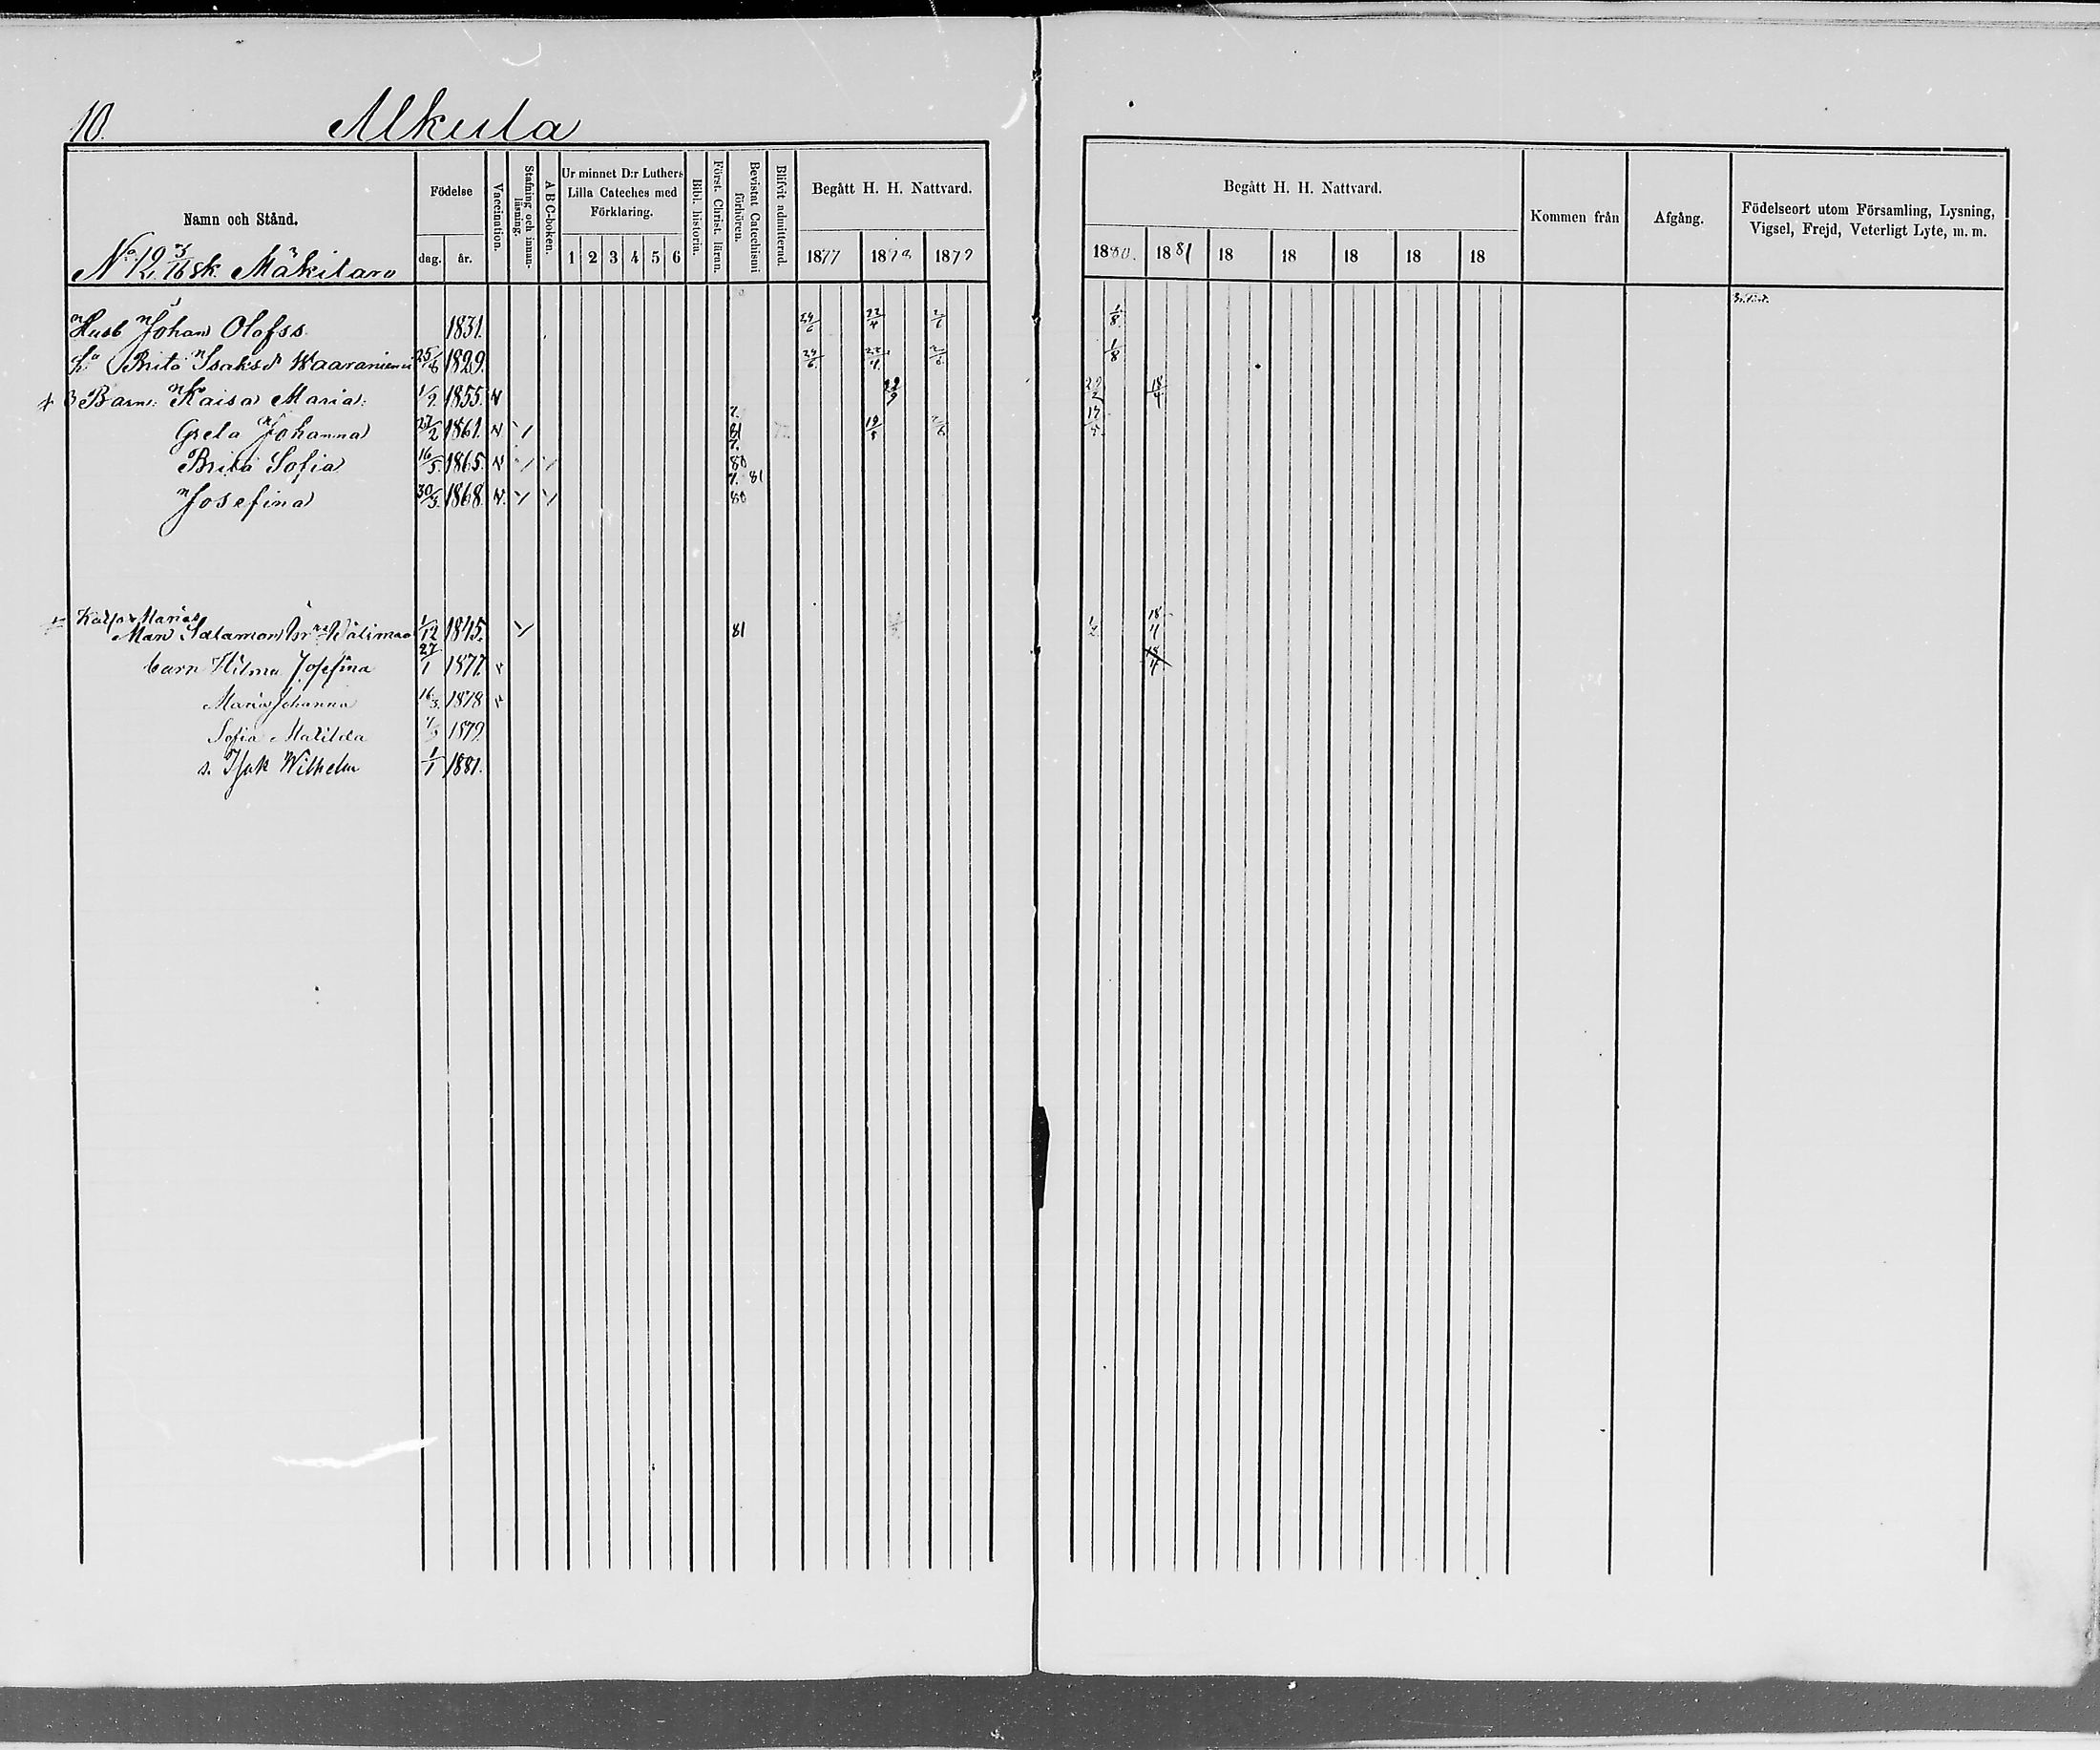 10.
Alkula
Namn och Stånd.
Födelse
dag.
år.
Vaccination.
Stafning och innan-läsning.
ABC-boken.
Ur minnet D:r Luthers Lilla Cateches med Förklaring.
1 2 3 4 5 6
Bibl. historia.
Först. Christ. läran.
Bevistat Catechismi förhören.
Blifvit admitterad.
Begått H. H. Nattvard.
1877 1878 1879
Begått H. H. Nattvard.
1880. 1881 18 18 18 18 18
Kommen från
Afgång.
Födelseort utom Församling, Lysning, Vigsel, Frejd, Veterligt Lyte, m. m.
No 12 3/16 sk. Mäkitaro
Husb Johan Olofss 1831. 24/6 22/4 2/6 1/8
h. Brita Isaksdr Waaraniemi 25/8 1829. 24/6 22/4 2/6 1/8
Barn: Kaisa Maria 1/2 1855. 22/9 22/2 18/4
Greta Johanna 27/2 1861. 81 19/5 17/5
Brita Sofia 16/5 1865. 80 81
Josefina 30/3 1868. 80
Kaisa Marias
Man Salamon 1/12 1845. 81 1/2 18/4
barn Hilma Josefina 27/1 1877. 18/4
Maria Johanna 16/3 1878
Sofia Matilda 1879
s. Isak Wilhelm 1/1 1881.